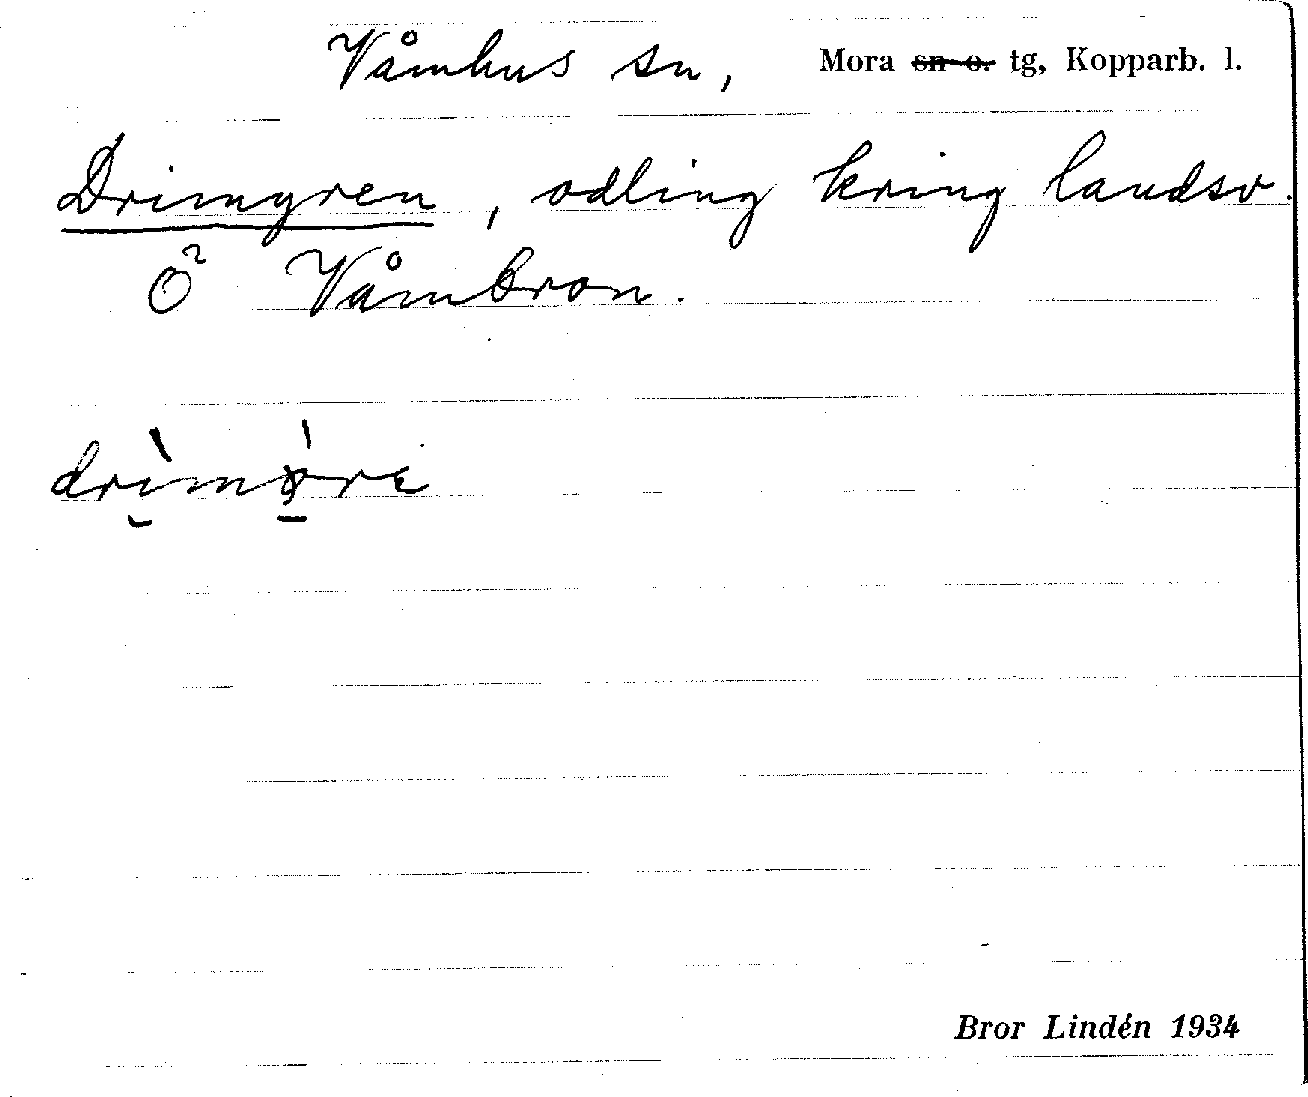 Våmhus sn, Mora sn o. tg, Kopparb. l.
Drimyren, odling kring landsv.
Ö² Våmbron.
Bror Lindén 1934